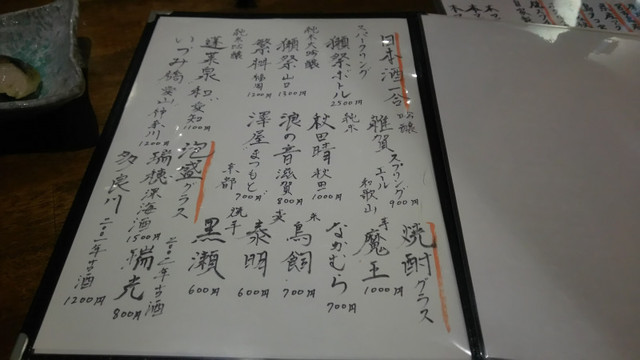 日本酒一合
スパークリング
獺祭ボトル
2500円
純米大吟醸
獺祭 山口
1300円
繁桝 福岡
1200円
純米吟醸
蓬莱泉 和 愛知
1100円
いづみ橋 恵 神奈川
1200円
吟醸
雑賀 スプリングエール 和歌山
900円
純米
秋田晴 秋田
1000円
浪の音 滋賀
800円
澤屋まつもと 京都
700円
焼酎グラス
芋
魔王
1000円
米
なかむら
700円
鳥飼
700円
麦
泰明
600円
焼芋
黒瀬
600円
泡盛グラス
瑞穂 深海酒
1500円
瑞光 古酒
800円
多良川 古酒
1200円